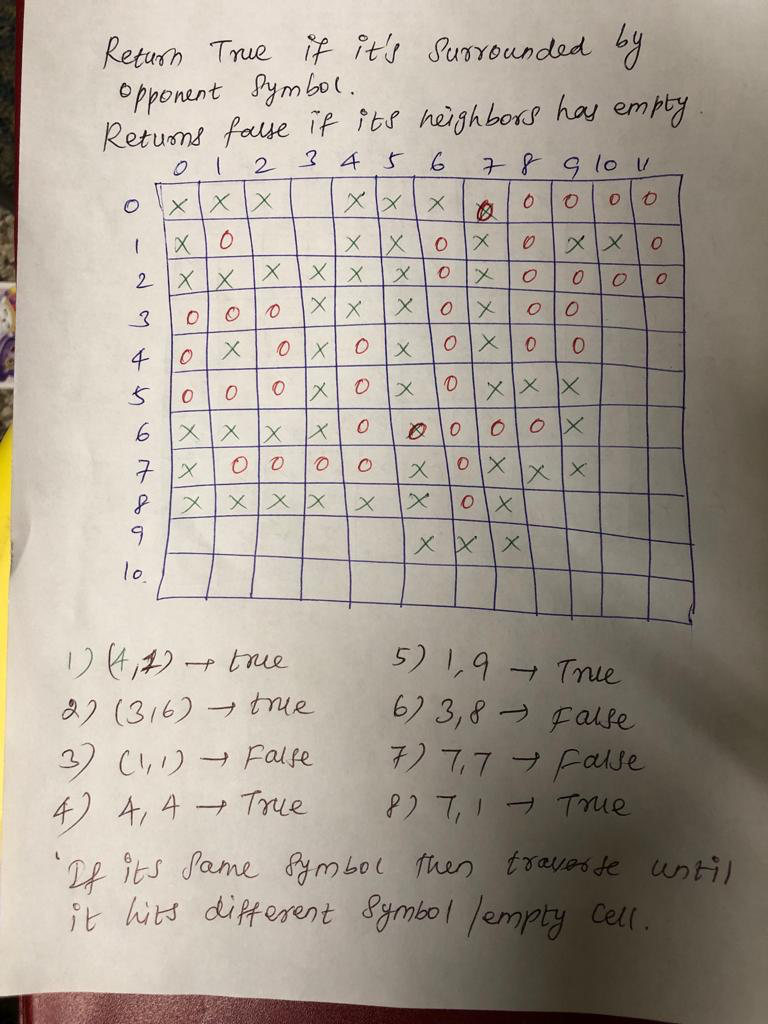 Return True if it's surrounded by
opponent symbol.
Returns false if its neighbors has empty.
0 1 2 3 4 5 6 7 8 9 10 11
0 X X X X X X O O O O
1 X O X X O X O X X O
2 X X X X X X O X O O O O
3 O O O X X X O X O O
4 O X O X O X O X O O
5 O O O X O X O X X X
6 X X X X O O O O X
7 X O O O O X O X X X
8 X X X X X X O X
9 X X X
10.
1) (4,1) → true
2) (3,6) → true
3) (1,1) → False
4) 4,4 → True
5) 1,9 → True
6) 3,8 → False
7) 7,7 → False
8) 7,1 → True
'If its same symbol then traverse until
it hits different symbol /empty cell.